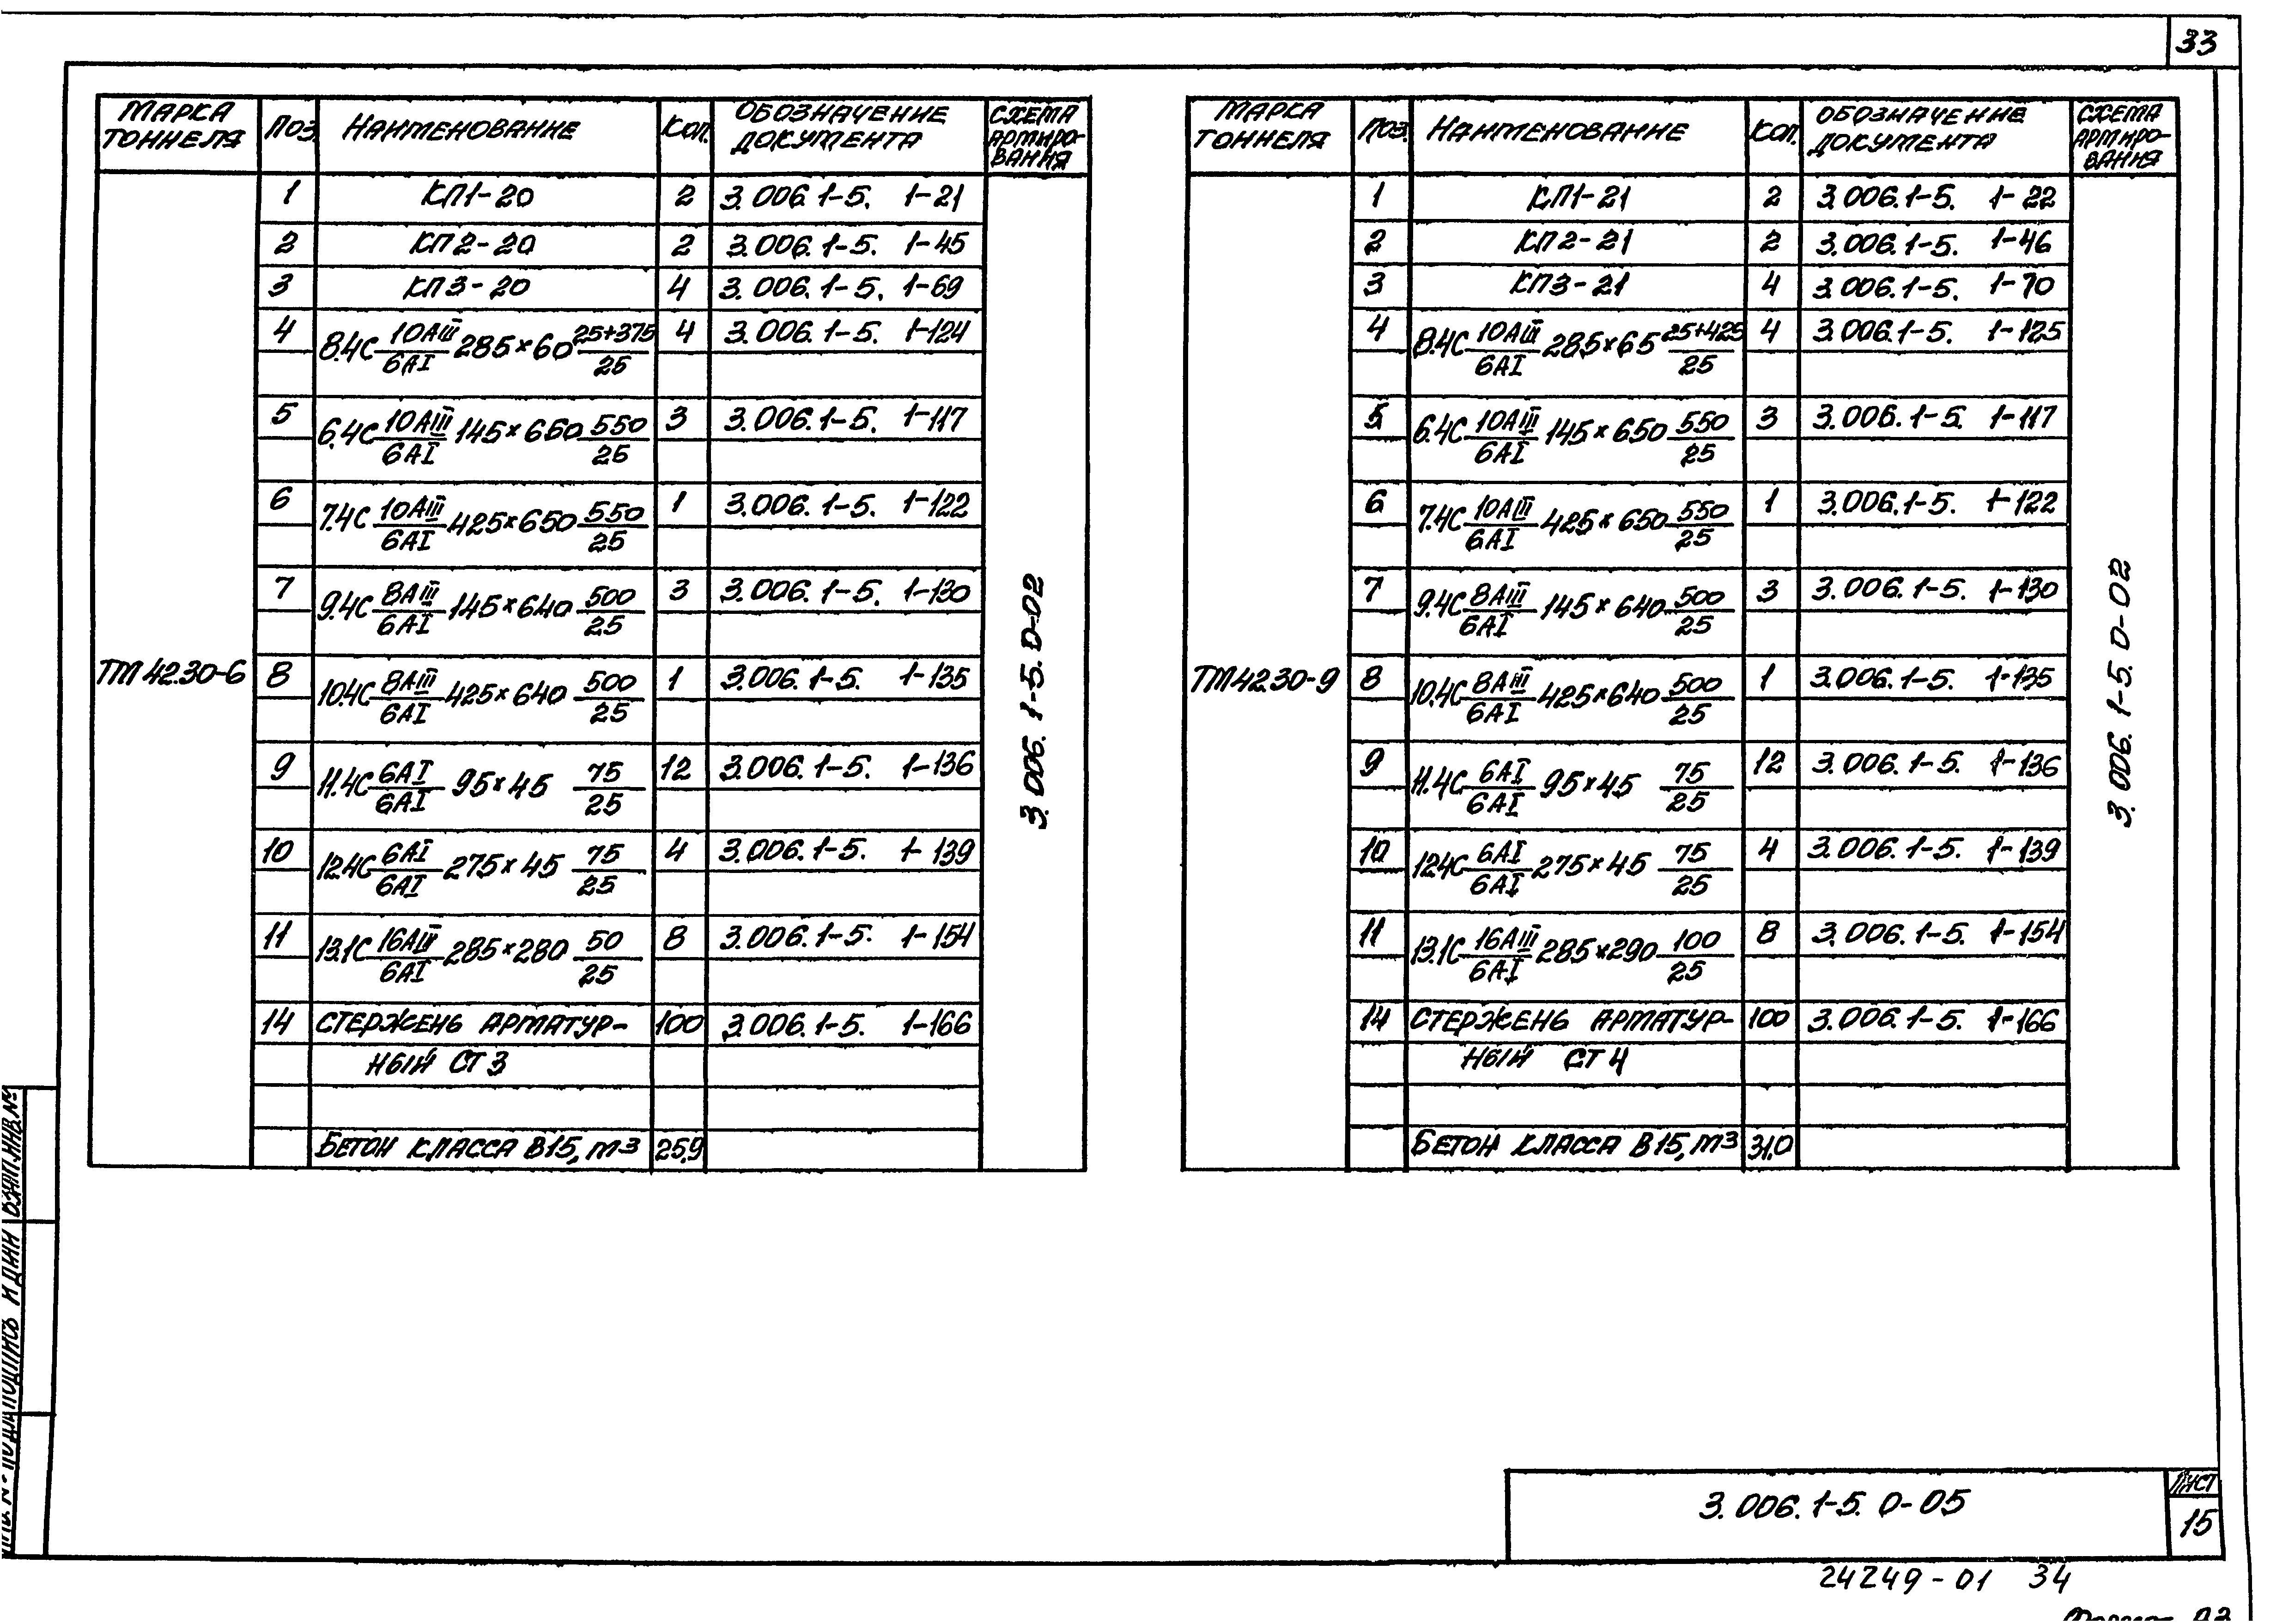 33
МАРКА ТОННЕЛЯ | ПОЗ. | НАИМЕНОВАНИЕ | КОЛ. | ОБОЗНАЧЕНИЕ ДОКУМЕНТА | СХЕМА АРМИРО-ВАНИЯ
ТМ 42.30-6
1 | КП1-20 | 2 | 3.006.1-5. 1-21
2 | КП2-20 | 2 | 3.006.1-5. 1-45
3 | КП3-20 | 4 | 3.006.1-5. 1-69
4 | 8.4С 10АIII/6АI 285×60 25+375/25 | 4 | 3.006.1-5. 1-124
5 | 6.4С 10АIII/6АI 145×650 550/25 | 3 | 3.006.1-5. 1-117
6 | 7.4С 10АIII/6АI 425×650 550/25 | 1 | 3.006.1-5. 1-122
7 | 9.4С 8АIII/6АI 145×640 500/25 | 3 | 3.006.1-5. 1-130
8 | 10.4С 8АIII/6АI 425×640 500/25 | 1 | 3.006.1-5. 1-135
9 | 11.4С 6АI/6АI 95×45 75/25 | 12 | 3.006.1-5. 1-136
10 | 12.4С 6АI/6АI 275×45 75/25 | 4 | 3.006.1-5. 1-139
11 | 13.1С 16АIII/6АI 285×280 50/25 | 8 | 3.006.1-5. 1-154
14 | СТЕРЖЕНЬ АРМАТУР- | 100 | 3.006.1-5. 1-166
НЫЙ СТ 3
БЕТОН КЛАССА В15, м3 | 25,9
3.006.1-5.0-02
МАРКА ТОННЕЛЯ | ПОЗ. | НАИМЕНОВАНИЕ | КОЛ. | ОБОЗНАЧЕНИЕ ДОКУМЕНТА | СХЕМА АРМИРО-ВАНИЯ
ТМ 42.30-9
1 | КП1-21 | 2 | 3.006.1-5. 1-22
2 | КП2-21 | 2 | 3.006.1-5. 1-46
3 | КП3-21 | 4 | 3.006.1-5. 1-70
4 | 8.4С 10АIII/6АI 285×65 25+425/25 | 4 | 3.006.1-5. 1-125
5 | 6.4С 10АIII/6АI 145×650 550/25 | 3 | 3.006.1-5. 1-117
6 | 7.4С 10АIII/6АI 425×650 550/25 | 1 | 3.006.1-5. 1-122
7 | 9.4С 8АIII/6АI 145×640 500/25 | 3 | 3.006.1-5. 1-130
8 | 10.4С 8АIII/6АI 425×640 500/25 | 1 | 3.006.1-5. 1-135
9 | 11.4С 6АI/6АI 95×45 75/25 | 12 | 3.006.1-5. 1-136
10 | 12.4С 6АI/6АI 275×45 75/25 | 4 | 3.006.1-5. 1-139
11 | 13.1С 16АIII/6АI 285×290 100/25 | 8 | 3.006.1-5. 1-154
14 | СТЕРЖЕНЬ АРМАТУР- | 100 | 3.006.1-5. 1-166
НЫЙ СТ 4
БЕТОН КЛАССА В15, м3 | 31,0
3.006.1-5.0-02
ВЗАМ.ИНВ.№
3.006.1-5.0-05
ЛИСТ
15
24249-01 34